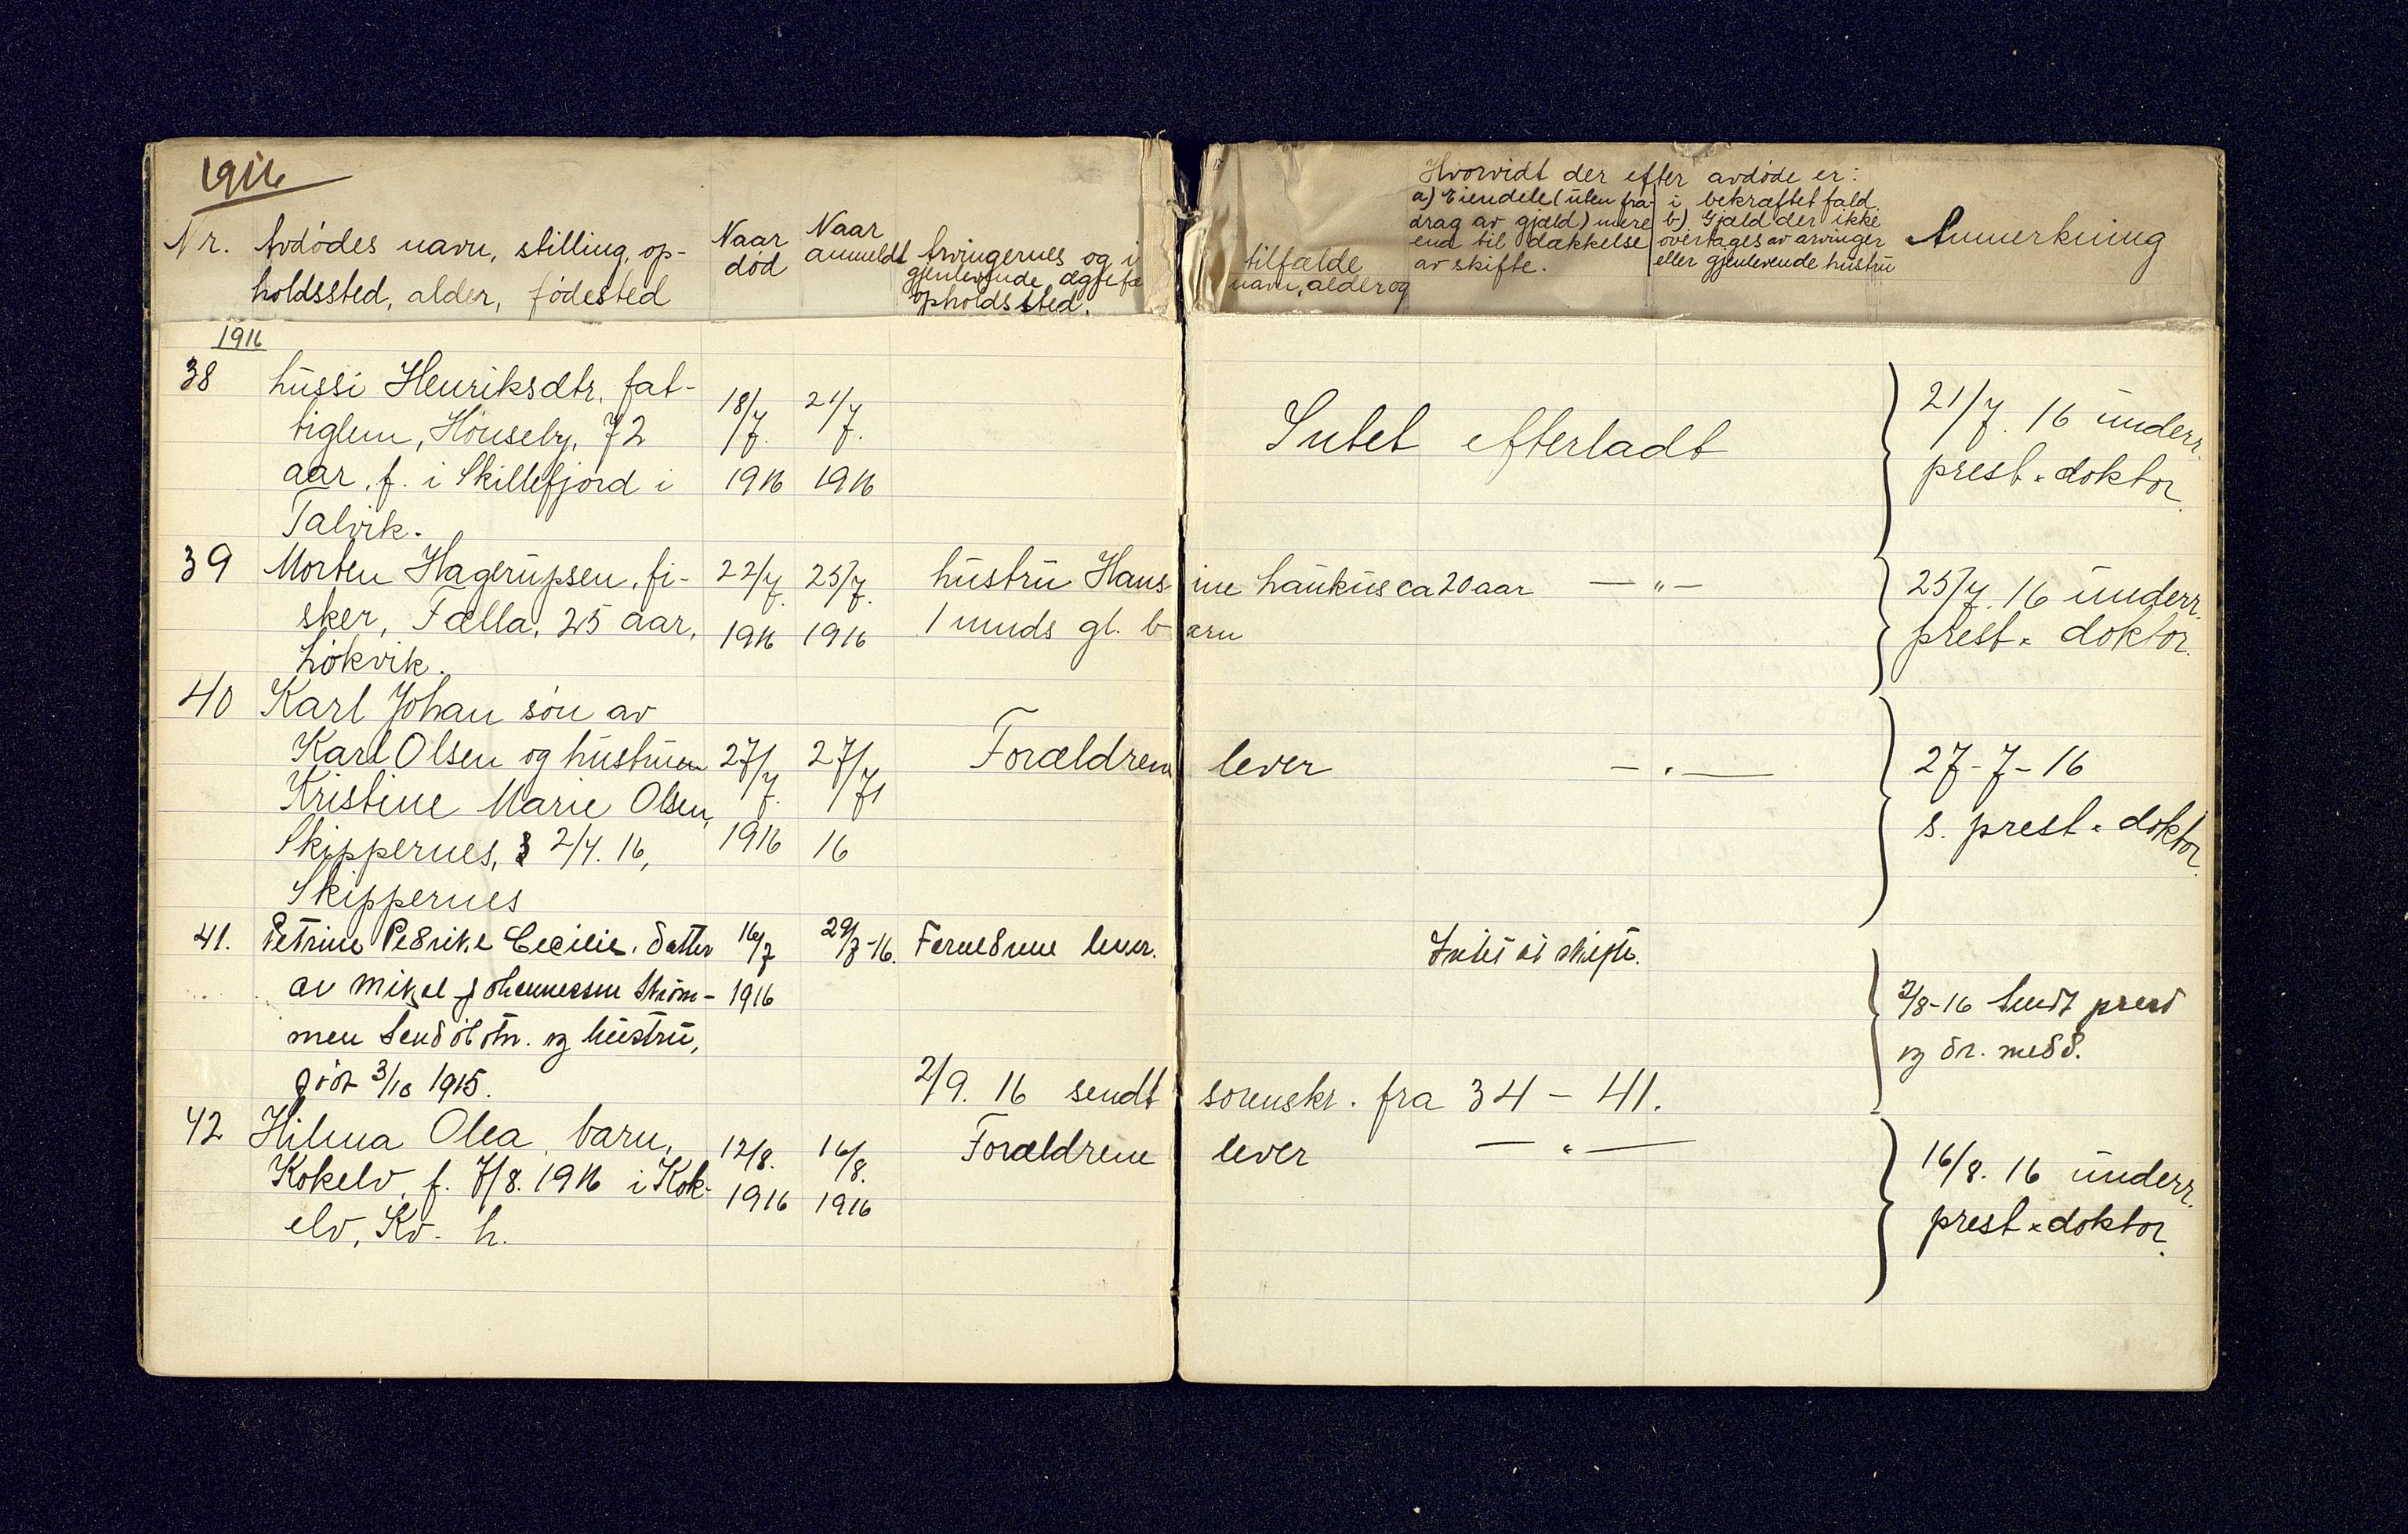 1916
Nr. Avdødes navn, stilling, op-
holdssted, alder, fødested
Naar
død
Naar
anmeldt
Arvingernes og i
gjenlevende ægtefæ
opholdssted.
tilfælde
navn, alder og
Hvorvidt der efter avdøde er:
a) Eiendele (uten fra-
drag av gjæld) mere
end til dækkelse
av skifte.
i bekræftet fald.
b) Gjæld der ikke
overtages av arvinger
eller gjenlevende hustru
Anmerkning
1916
38 Lussi Henriksdtr. fat-
tiglem, Hønseby, 72
aar, f. i Skillefjord i
Talvik.
18/7.
1916
21/7.
1916
Intet efterladt
21/7. 16 underr.
prest & doktor.
39 Morten Hagerupsen, fi-
sker, Fælla, 25 aar,
Løkvik.
22/7.
1916
25/7.
1916
hustru Hansine Haukus ca 20 aar — " —
1 mnds gl. barn
25/7. 16 underr.
prest & doktor.
40 Karl Johan søn av
Karl Olsen og hustruen
Kristine Marie Olsen,
Skippernes, 2/4. 16,
Skippernes
27/7.
1916
27/7
16
Forældrene lever — " —
27-7-16
s. prest & doktor.
41. Petrine Pedrike Cecilie, datter
av Mikal Johannessen Strøm-
men Sendølbotn. og hustru,
født 3/10 1915.
16/7
1916
29/7-16.
Forældrene lever.
Intet at skifte.
2/8-16 Sendt prest
og dr. medd.
2/9. 16 sendt sorenskr. fra 34 - 41.
42 Hilma Olea, barn,
Kokelv, f. 7/8. 1916 i Kok-
elv, Kv. h.
12/8.
1916
16/8.
1916
Forældrene lever — " —
16/8. 16 underr.
prest & doktor.